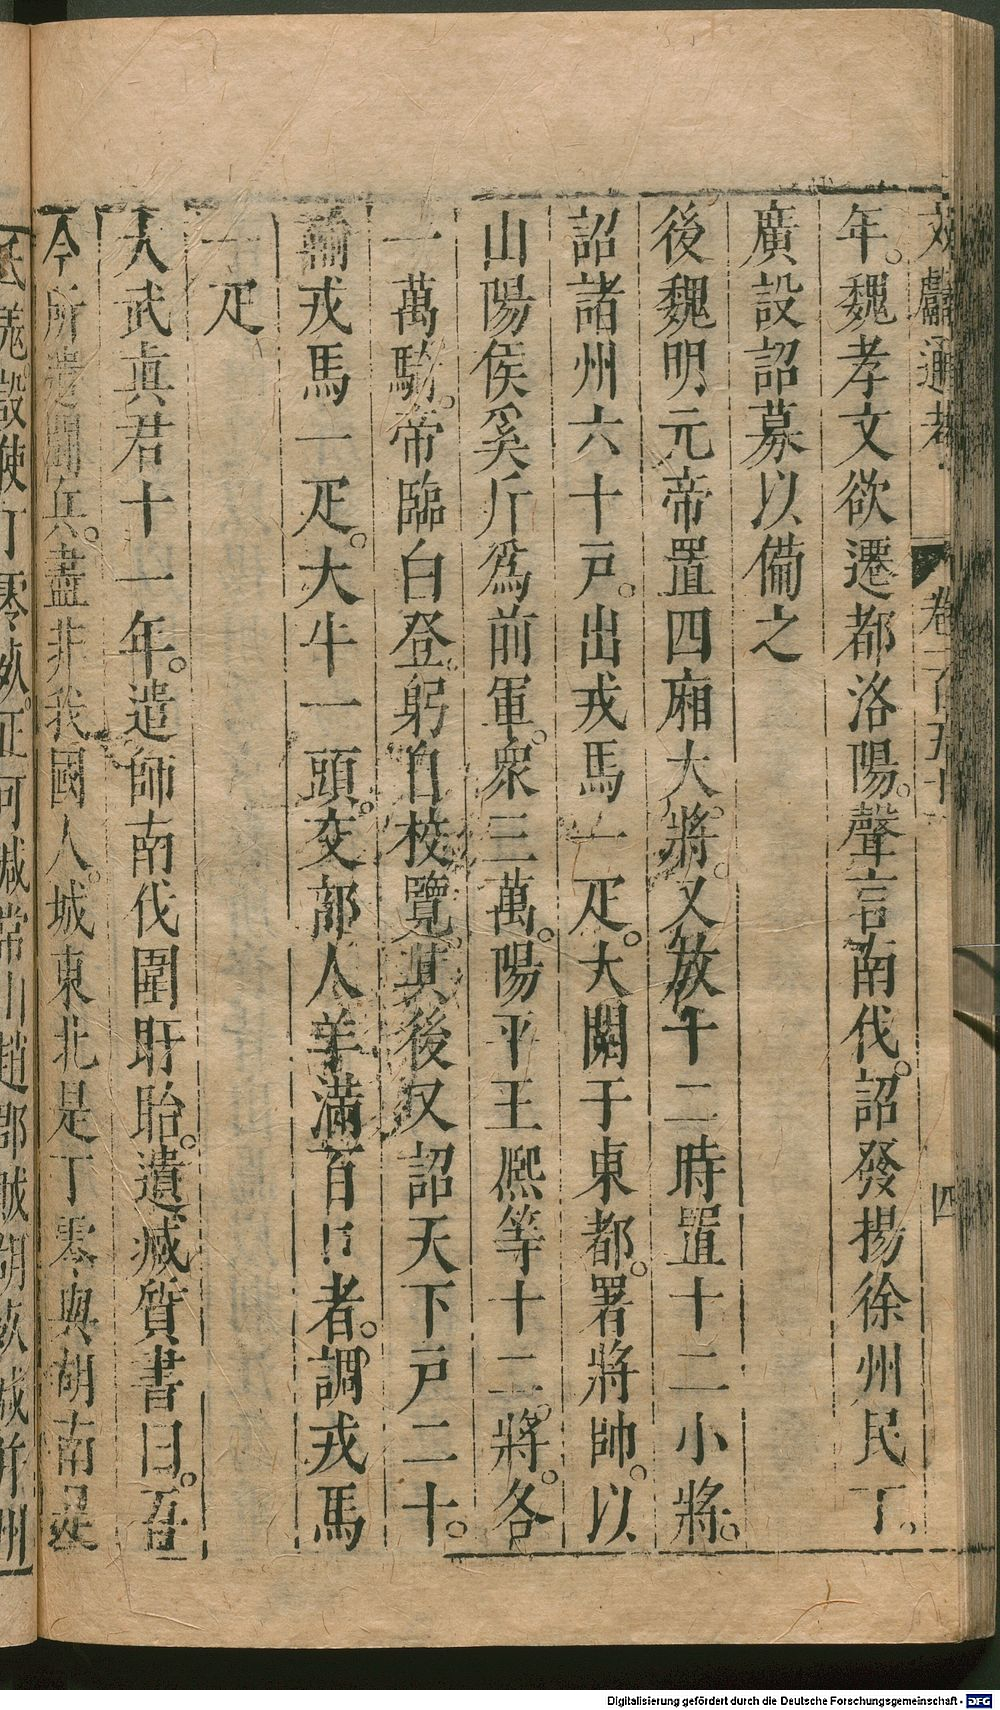 文獻通考 卷一百五十 四
年。魏孝文欲遷都洛陽。聲言南伐。詔發揚徐州民丁。
廣設詔募以備之
後魏明元帝置四廂大將。又放十二時置十二小將。
詔諸州六十戶。出戎馬一疋。大閱于東都。署將帥。以
山陽侯奚斤爲前軍。衆三萬。陽平王熙等十二將。各
一萬騎。帝臨白登。躬自校覽。其後又詔天下戶二十。
輸戎馬一疋。大牛一頭。交部人羊滿百口者。調戎馬
一疋
太武真君十一年。遣師南伐圍盱眙。遺臧質書曰。吾
今所遣鬬兵。盡非我國人。城東北是丁零與胡南是
氐羌。設使丁零死。正可減常山趙郡賊。胡死。減并州
Digitalisierung gefördert durch die Deutsche Forschungsgemeinschaft - DFG